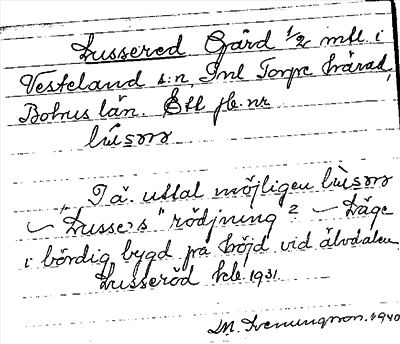 Lussered Gård 1/2 mtl. i
Vesteland s:n, Inl Torpe härad,
Bohus län. Ett jb. nr
lùsǝrǝ
I ä. uttal möjligen lùsǝrǝ
~ "Lusse:s" rödjning? ~ Läge
i bördig bygd på höjd vid älvdalen
Lusseröd kb. 1931.
M. Svenungsson. 1940